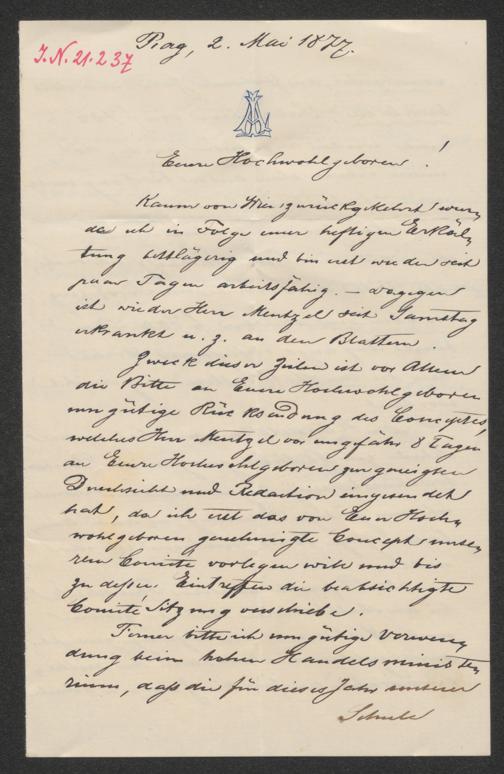 J.N. 21.237
Prag, 2. Mai 1877.
Eurer Hochwohlgeboren!
Kaum von Wien zurückgekehrt wur„
de ich in Folge einer heftigen Erkäl„
tung bettlägerig und bin erst wieder seit
paar Tagen arbeitsfähig. — dagegen
ist wieder Herr Mentzel seit Samstag
erkrankt u. z. an den Blattern.
Zweck dieser Zeilen ist vor Allem
die Bitte an Eurer Hochwohlgeboren
um gütige Rücksendung des Conceptes,
welches Herr Mentzel vor ungefähr 8 Tagen
an Eurer Hochwohlgeboren zur geneigten
Durchsicht und Redaction eingesendet
hat, da ich erst das von Euer Hoch„
wohlgeboren genehmigte Concept unse„
ren Comité vorlegen will und bis
zu dessen Eintreffen die beabsichtigte
Comité Sitzung verschiebe.
Ferner bitte ich um gütige Verwen„
dung beim hohen Handelsministe„
rium, daß die für dieses Jahr unserer
Schule